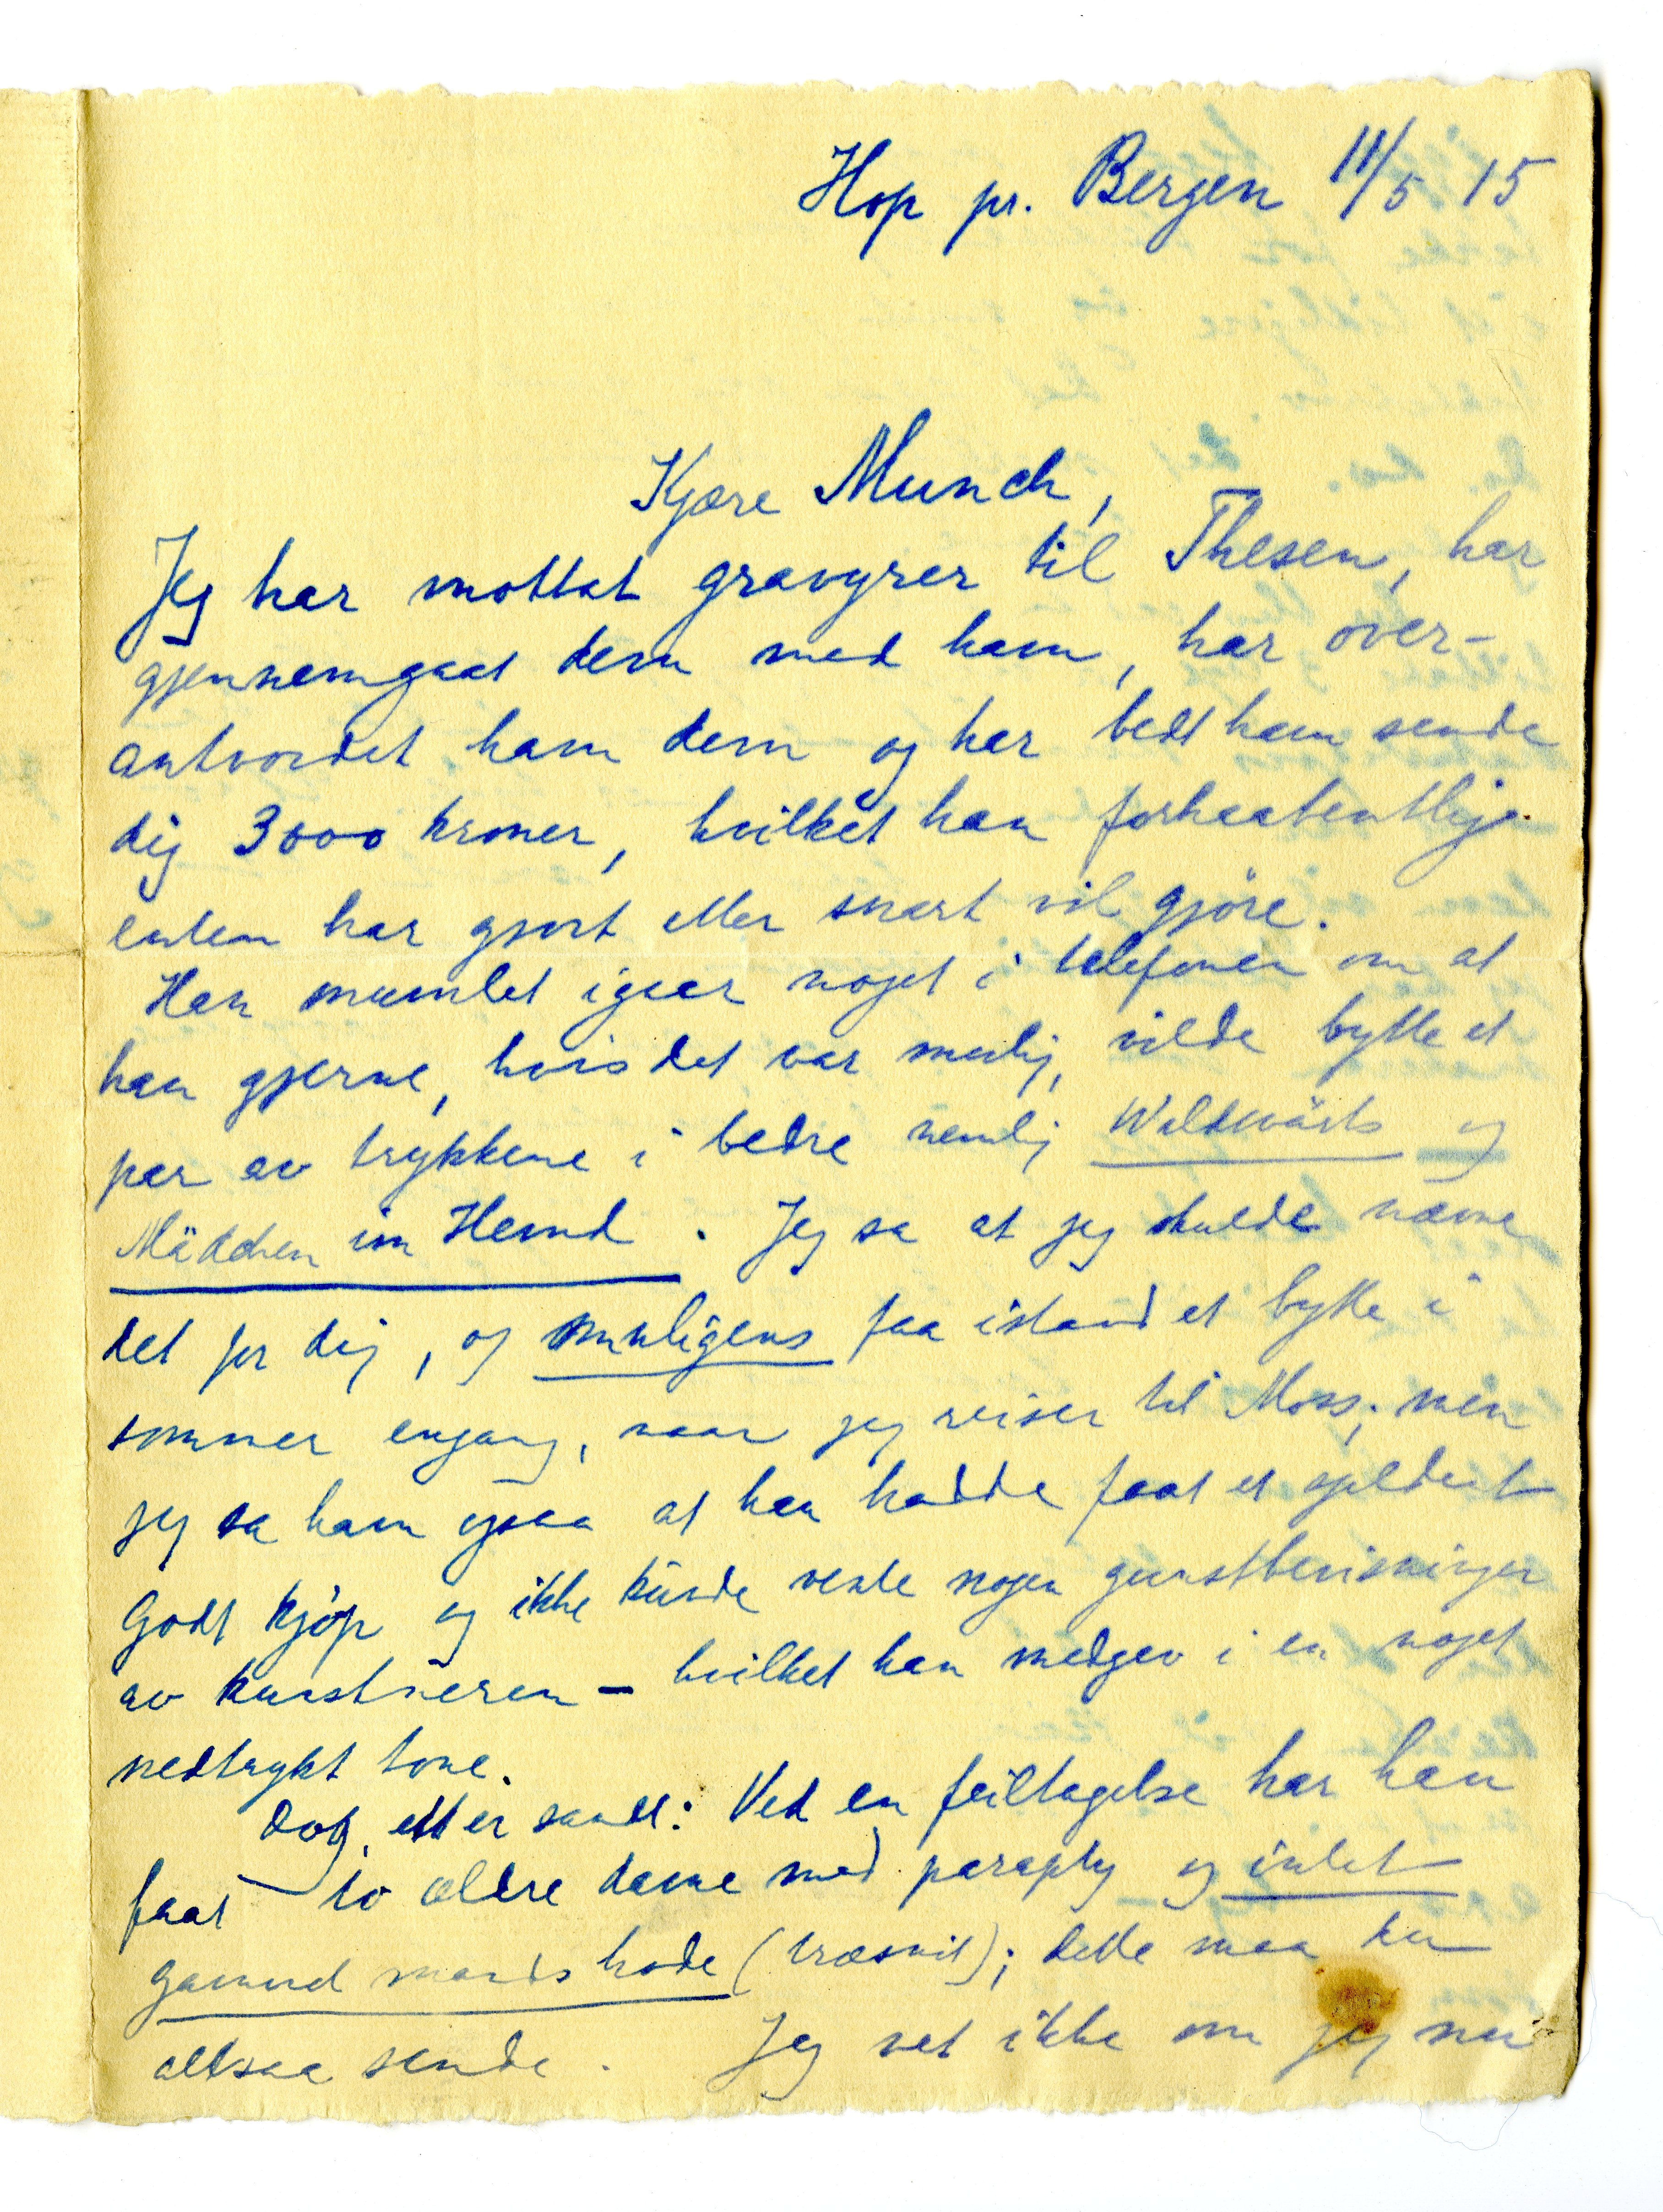 Hop pr. Bergen 11/5 15
Kjære Munch,
Jeg har mottat gravyrer til Thesen, har
gjennemgaat dem med ham, har över-
antvordet ham dem og har bedt ham sende
dig 3000 kroner, hvilket han forhaabentlig
enten har gjort eller snart vil gjöre.
Han mumlet igaar noget i telefonen om at
han gjerne, hvis det var mulig, vilde bytte et
par av trykkene i bedre nemlig Waldwärts og
Mädchen im Hemd. Jeg sa at jeg skulde nævne
det for dig, og muligens faa istand et bytte i
sommer engang, naar jeg reiser til Moss; men
jeg sa ham ogsaa at han hadde faat et gildest
godt kjöp og ikke kunde vente nogen gunstbevisninger
av kunstneren – hvilket han medgav i en noget
nedtrykt tone.
Dog, ett er sandt: Ved en feiltagelse har han
faat to ældre dame med paraply og intet
gammel mands hode (træsnit); dette maa du
altsaa sende. Jeg vet ikke om jeg nu